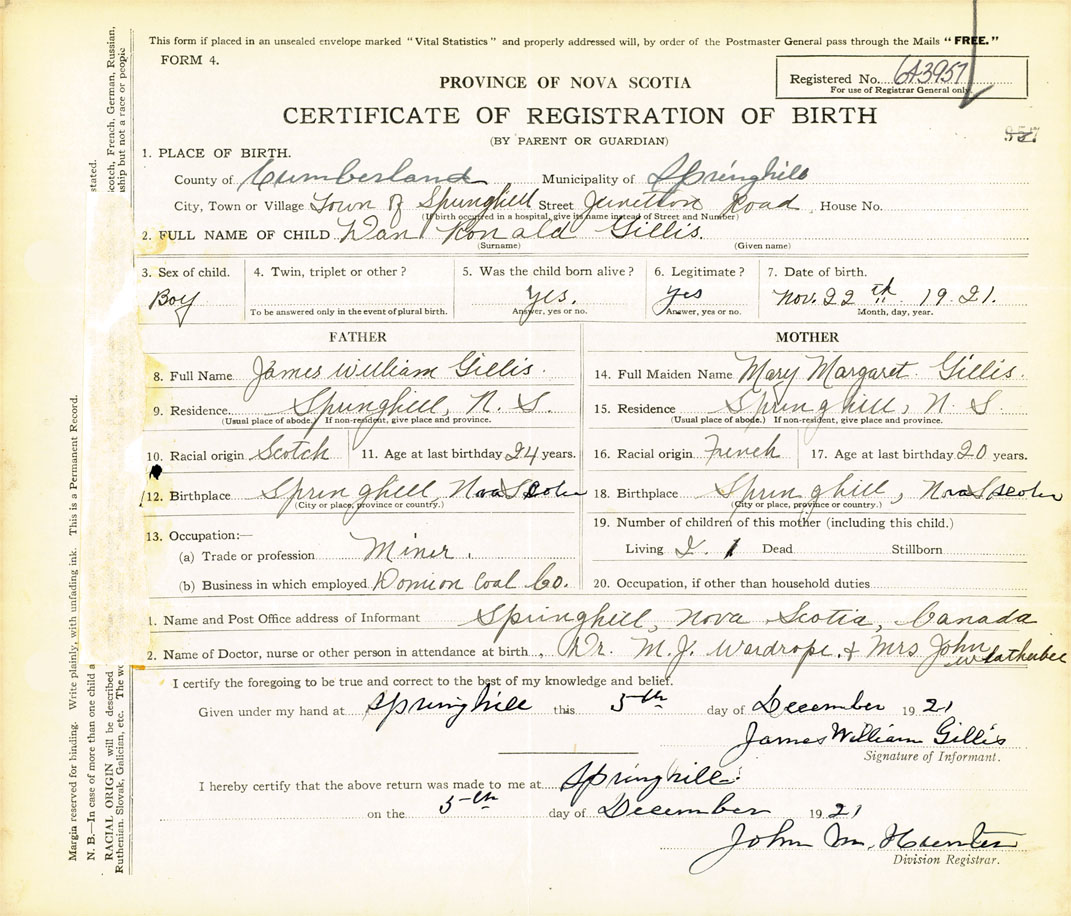 This form if placed in an unsealed envelope marked "Vital Statistics" and properly addressed will, by order of the Postmaster General pass through the Mails "FREE."
FORM 4.
PROVINCE OF NOVA SCOTIA
Registered No. 643957
For use of Registrar General only.
CERTIFICATE OF REGISTRATION OF BIRTH
(BY PARENT OR GUARDIAN)
957
1. PLACE OF BIRTH.
County of Cumberland Municipality of Springhill
City, Town or Village Town of Springhill Street Junction Road House No.
(If birth occurred in a hospital, give its name instead of Street and Number)
2. FULL NAME OF CHILD Dan Ronald Gillis.
(Surname) (Given name)
3. Sex of child. 4. Twin, triplet or other? 5. Was the child born alive? 6. Legitimate? 7. Date of birth.
Boy yes. yes Nov. 22th 1921.
To be answered only in the event of plural birth. Answer, yes or no. Answer, yes or no. Month, day, year.
FATHER MOTHER
8. Full Name James William Gillis. 14. Full Maiden Name Mary Margaret Gillis.
9. Residence Springhill, N. S. 15. Residence Springhill, N. S.
(Usual place of abode.) If non-resident, give place and province. (Usual place of abode.) If non-resident, give place and province.
10. Racial origin Scotch 11. Age at last birthday 24 years. 16. Racial origin French 17. Age at last birthday 20 years.
12. Birthplace Springhill, Nova Scotia 18. Birthplace Springhill, Nova Scotia
(City or place, province or country.) (City or place, province or country.)
19. Number of children of this mother (including this child.)
13. Occupation:—
(a) Trade or profession Miner. Living 1 Dead Stillborn
(b) Business in which employed Domion Coal Co. 20. Occupation, if other than household duties
1. Name and Post Office address of Informant Springhill, Nova Scotia, Canada
2. Name of Doctor, nurse or other person in attendance at birth Dr. M. J. Wardrope, & Mrs John Weatherbee
I certify the foregoing to be true and correct to the best of my knowledge and belief.
Given under my hand at Springhill this 5th day of December 1921
James William Gillis
Signature of Informant.
I hereby certify that the above return was made to me at Springhill
on the 5th day of December 1921
John M. Hunter
Division Registrar.
Margin reserved for binding. Write plainly, with unfading ink. This is a Permanent Record.
N. B.—In case of more than one child a stated.
RACIAL ORIGIN will be described cotch, French, German, Russian,
Ruthenian, Slovak, Galician, etc. The w ship but not a race or people